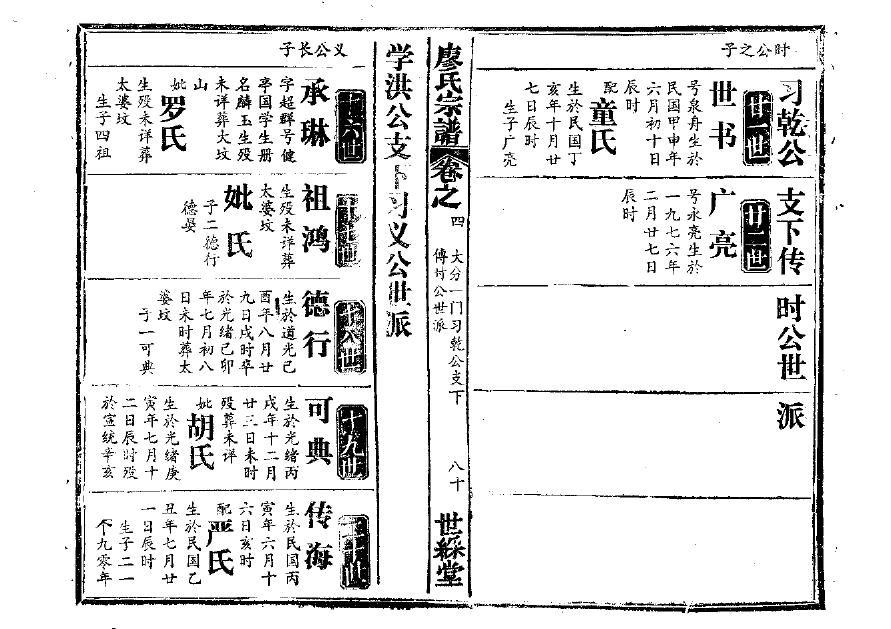 时公之子
习乾公支下传时公世派
廿一世
世书
号泉舟生於
民国甲申年
六月初十日
辰时
配
童氏
生於民国丁
亥年十月廿
七日辰时
生子广亮
廿二世
广亮
号永亮生於
一九七六年
二月廿七日
辰时
廖氏宗譜
卷之四
大分一门习乾公支下
傅时公世派
八十
世綵堂
学洪公支下习义公世派
义公长子
十六世
承琳
字超群号健
亭国学生册
名麟玉生殁
未详葬大坟
山
妣
罗氏
生殁未详葬
太婆坟
生子四祖
十七世
祖鸿
生殁未详葬
太婆坟
妣氏
子二德行
德晏
十八世
德行
生於道光己
酉年八月廿
九日戌时卒
於光绪己卯
年七月初八
日未时葬太
婆坟
子一可典
十九世
可典
生於光绪丙
戌年十二月
廿三日未时
殁葬未详
妣
胡氏
生於光绪庚
寅年七月十
二日辰时殁
於宣统辛亥
二十世
传海
生於民国丙
寅年六月十
六日亥时
配
严氏
生於民国乙
丑年七月廿
一日辰时
生子二一
个九零年